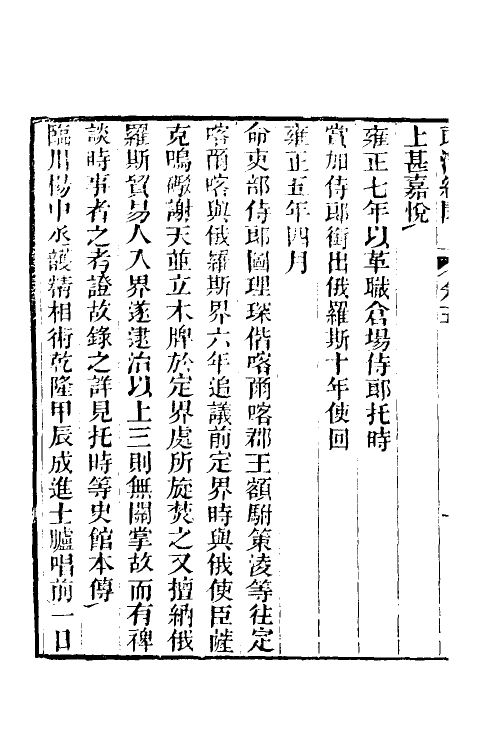 上甚嘉悅
雍正七年以革職倉場侍郎托時
賞加侍郎銜出俄羅斯十年使回
雍正五年四月
命吏部侍郎圖理琛偕喀爾喀郡王額駙策淩等往定
喀爾喀與俄羅斯界六年追議前定界時與俄使臣薩
克鳴礮謝天並立木牌於定界處所旋焚之又擅納俄
羅斯貿易人入界遂逮治以上三則無關掌故而有裨
談時事者之考證故錄之詳見托時等史館本傳
臨川楊中丞頀精相術乾隆甲辰成進士臚唱前一日